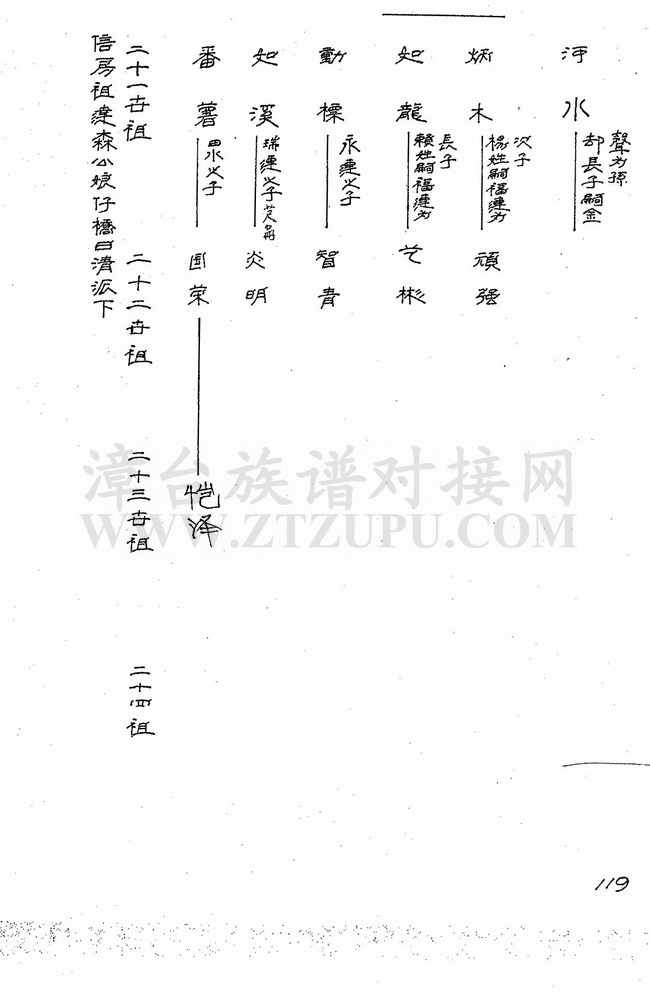 河水
却長子嗣金
聲为孫
炳木
楊姓嗣福連为
次子
頑强
如龍
賴姓嗣福連为
長子
艺彬
勤標
永連之子
智青
如溪
瑞連之子
炎明
番薯
田水之子
国荣
恺泽
二十一世祖
二十二世祖
二十三世祖
二十四祖
信房祖達森公娘仔橋日濟派下
漳台族谱对接网
WWW.ZTZUPU.COM
119